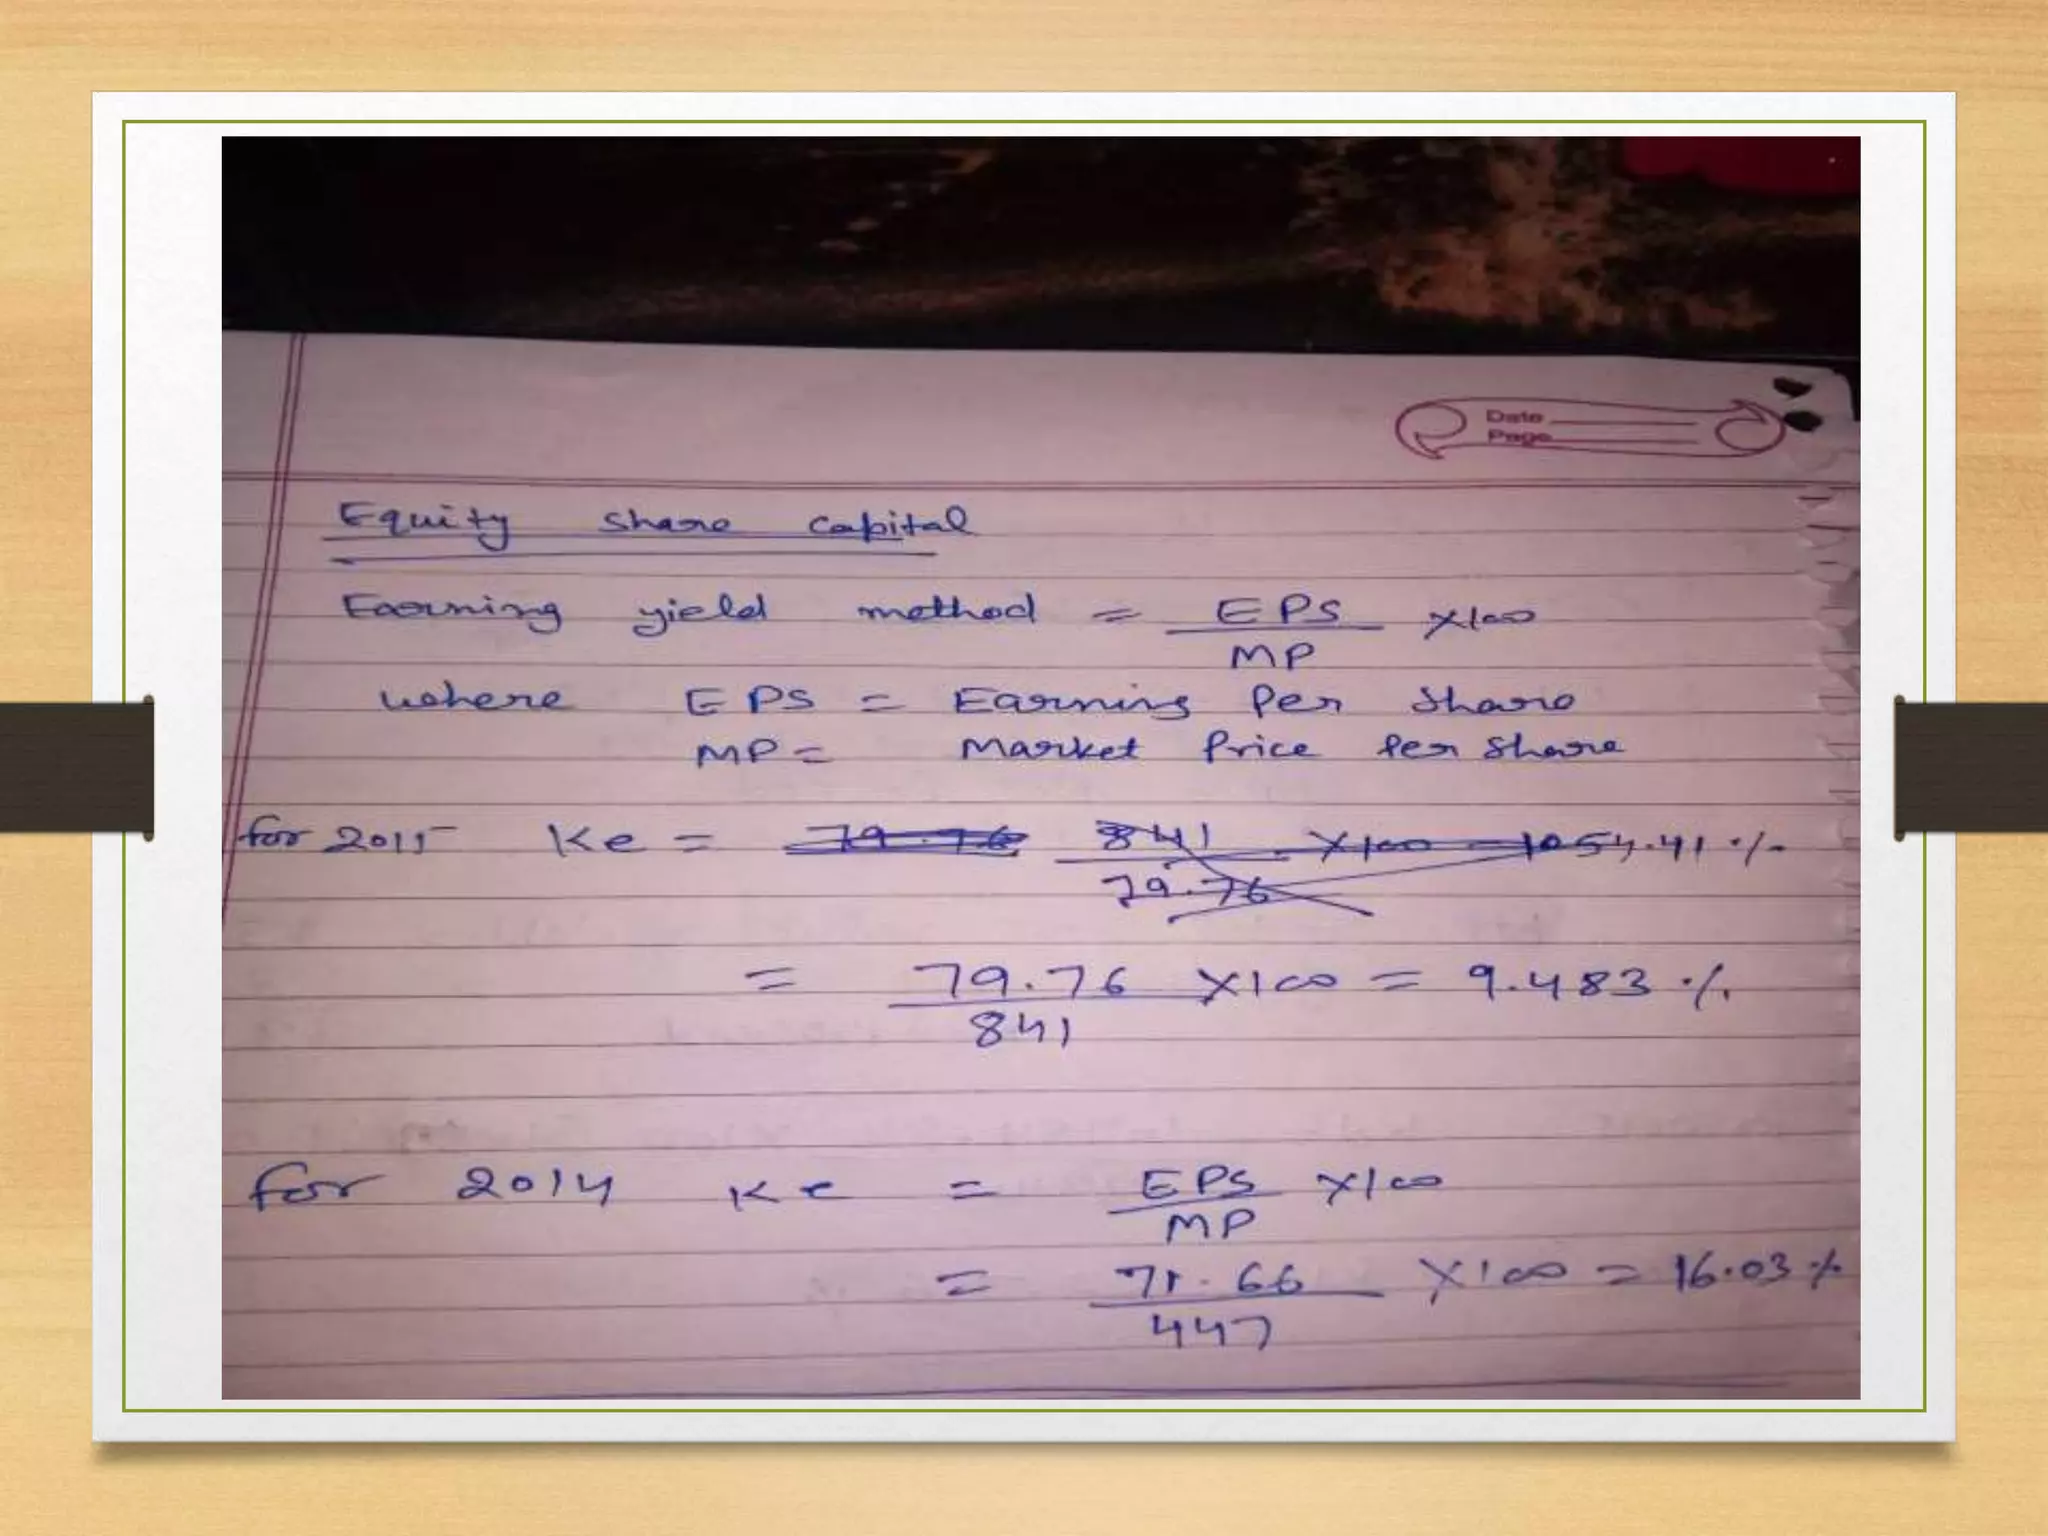 Date
Page
Equity share capital
Earning yield method = EPS / MP X100
where EPS = Earning Per Share
MP = Market Price Per Share
for 2015 Ke = 79.76 841 / 79.76 X100 = 1054.41 %
= 79.76 / 841 X100 = 9.483 %
for 2014 Ke = EPS / MP X100
= 71.66 / 447 X100 = 16.03 %